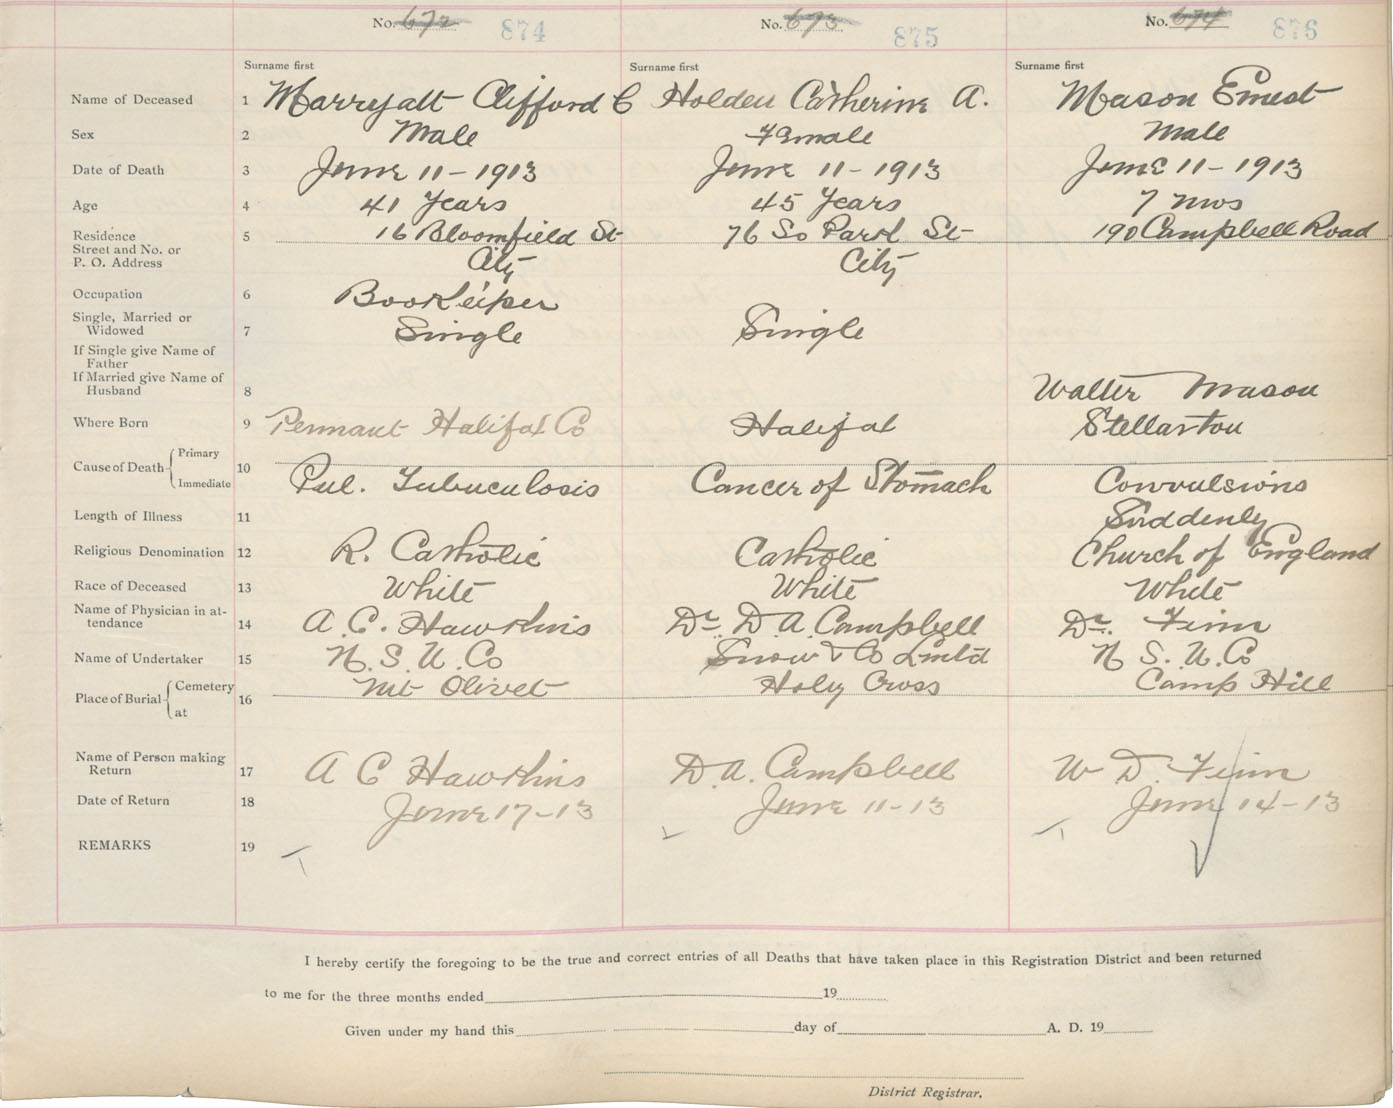 No. 672 874 No. 673 875 No. 674 876
Surname first Surname first Surname first
Name of Deceased 1 Marryatt Clifford C Holden Catherine A. Mason Ernest
Sex 2 Male Female Male
Date of Death 3 June 11-1913 June 11-1913 June 11-1913
Age 4 41 Years 45 Years 7 mos
Residence 5 16 Bloomfield St 76 So Park St 190 Campbell Road
Street and No. or
P. O. Address City City
Occupation 6 Bookeiper
Single, Married or
Widowed 7 Single Single
If Single give Name of
Father
If Married give Name of
Husband 8 Walter Mason
Where Born 9 Pennant Halifax Co Halifax Stellarton
Cause of Death Primary 10
Immediate Pul. Tubuculosis Cancer of Stomach Convulsions
Length of Illness 11 Suddenly
Religious Denomination 12 R. Catholic Catholic Church of England
Race of Deceased 13 White White White
Name of Physician in at-
tendance 14 A. C. Hawkins Dr. D. A. Campbell Dr. Finn
Name of Undertaker 15 N. S. U. Co Snow & Co Lmtd N. S. U. Co
Place of Burial Cemetery 16 Mt Olivet Holy Cross Camp Hill
at
Name of Person making
Return 17 A C Hawkins D. A. Campbell W D. Finn
Date of Return 18 June 17-13 June 11-13 June 14-13
REMARKS 19
I hereby certify the foregoing to be the true and correct entries of all Deaths that have taken place in this Registration District and been returned
to me for the three months ended 19
Given under my hand this day of A. D. 19
District Registrar.